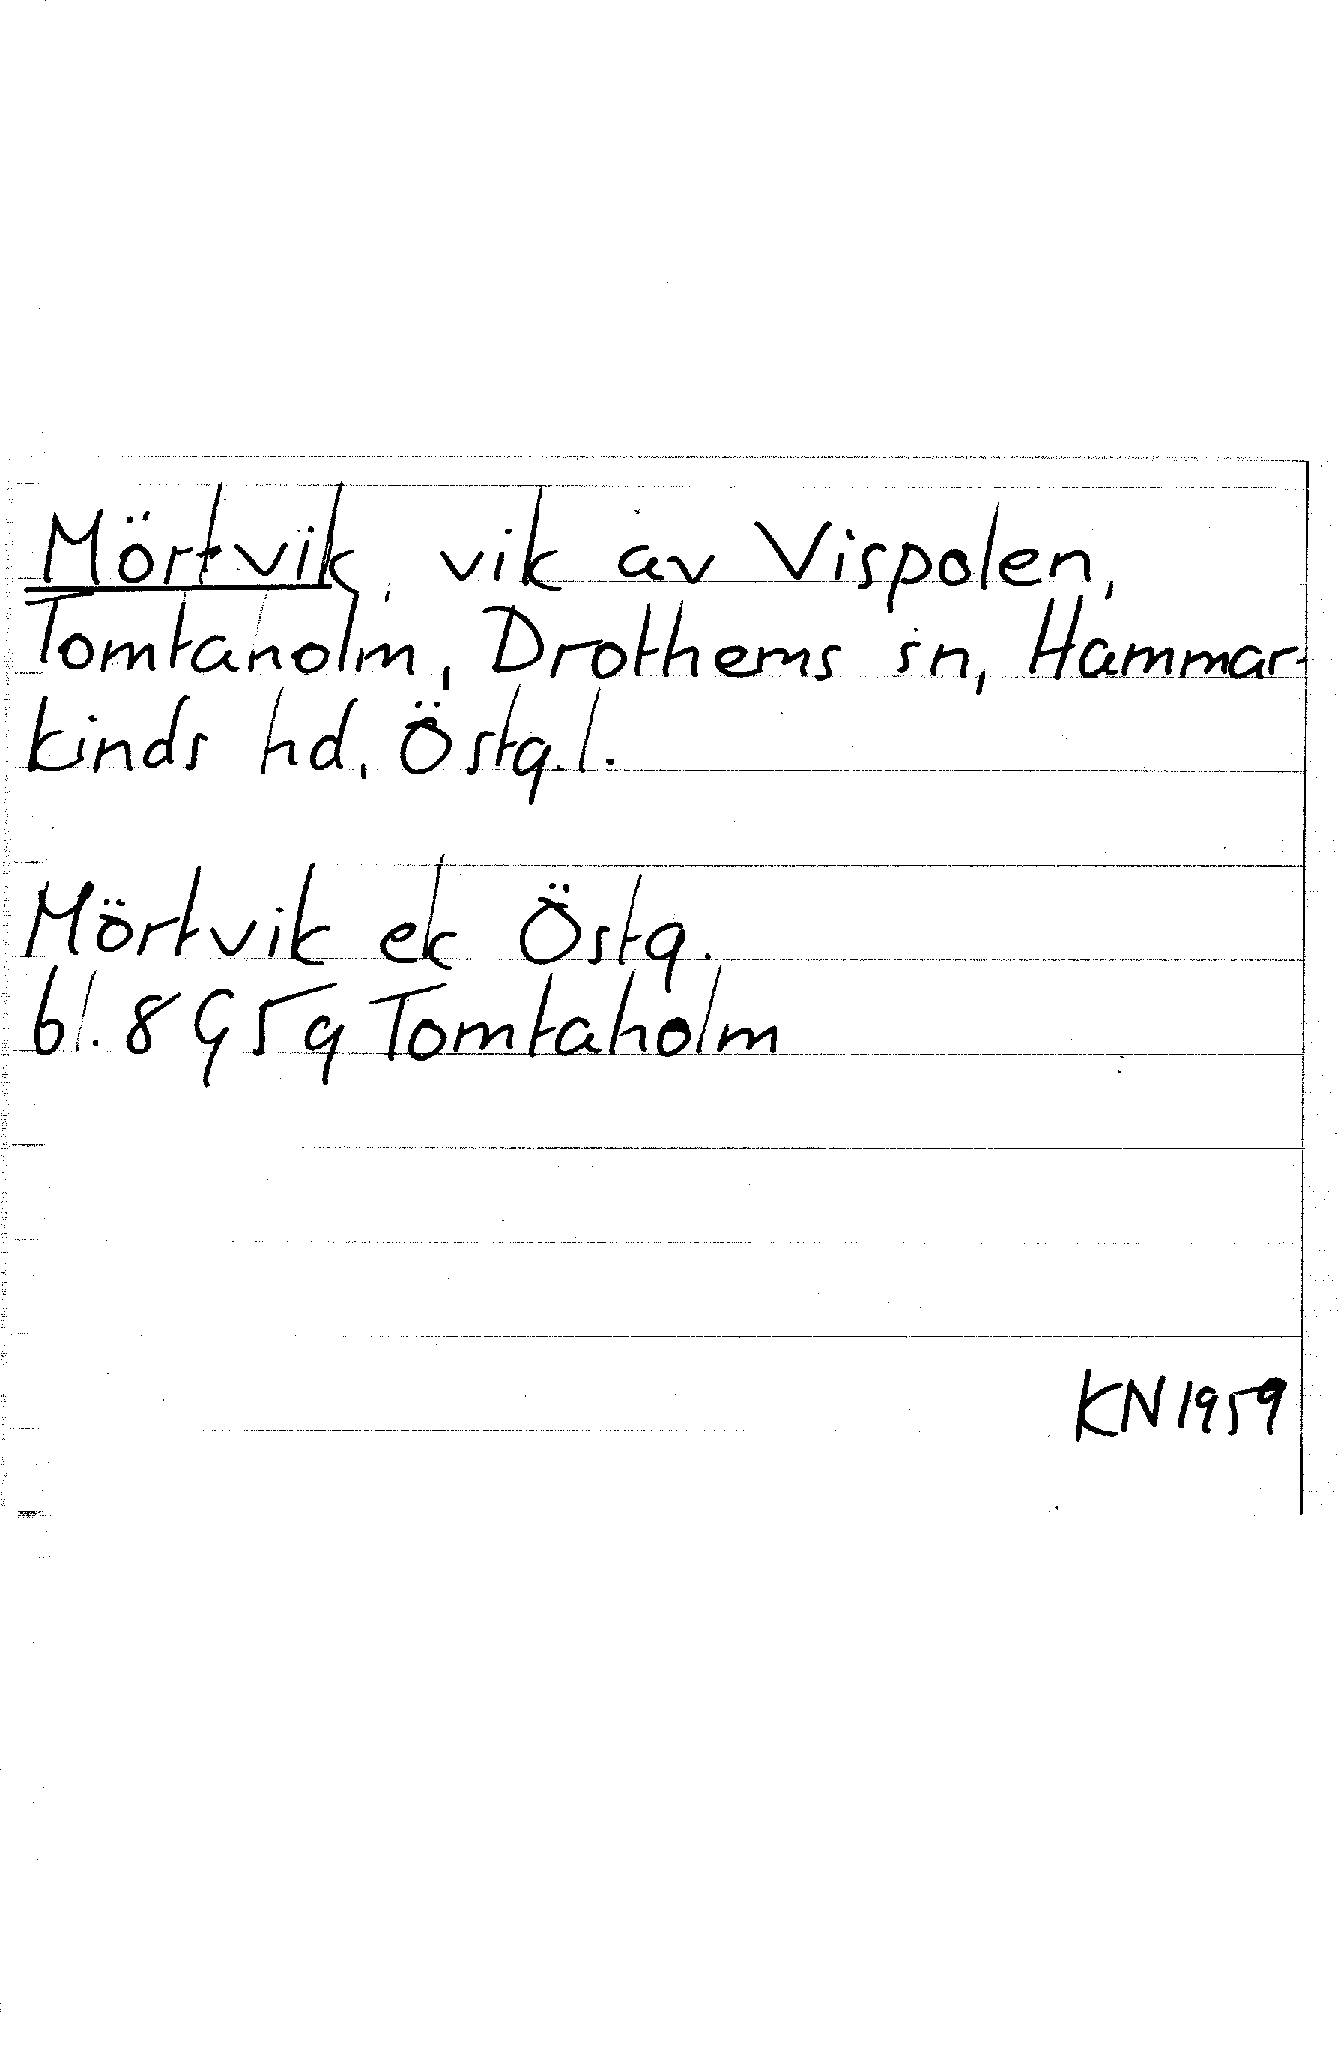 Mörtvik, vik av Vispolen,
Tomtaholm, Drothems sn, Hammar-
kinds hd, Östg.l.
Mörtvik ek Östg.
bl. 8 G 5g Tomtaholm
KN 1959